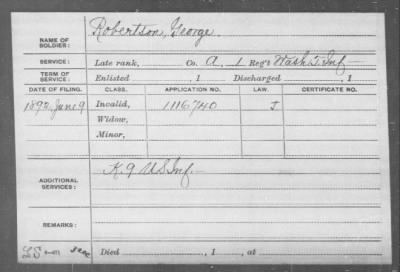 NAME OF SOLDIER: Robertson, George.
SERVICE: Late rank, Co. A, 1 Reg't Wash. T. Inf
TERM OF SERVICE: Enlisted , 1 Discharged , 1
DATE OF FILING. CLASS. APPLICATION NO. LAW. CERTIFICATE NO.
1892, June 9 Invalid, 1116740 J
Widow,
Minor,
ADDITIONAL SERVICES: K. 9 U.S. Inf.
REMARKS:
Died , 1 , at